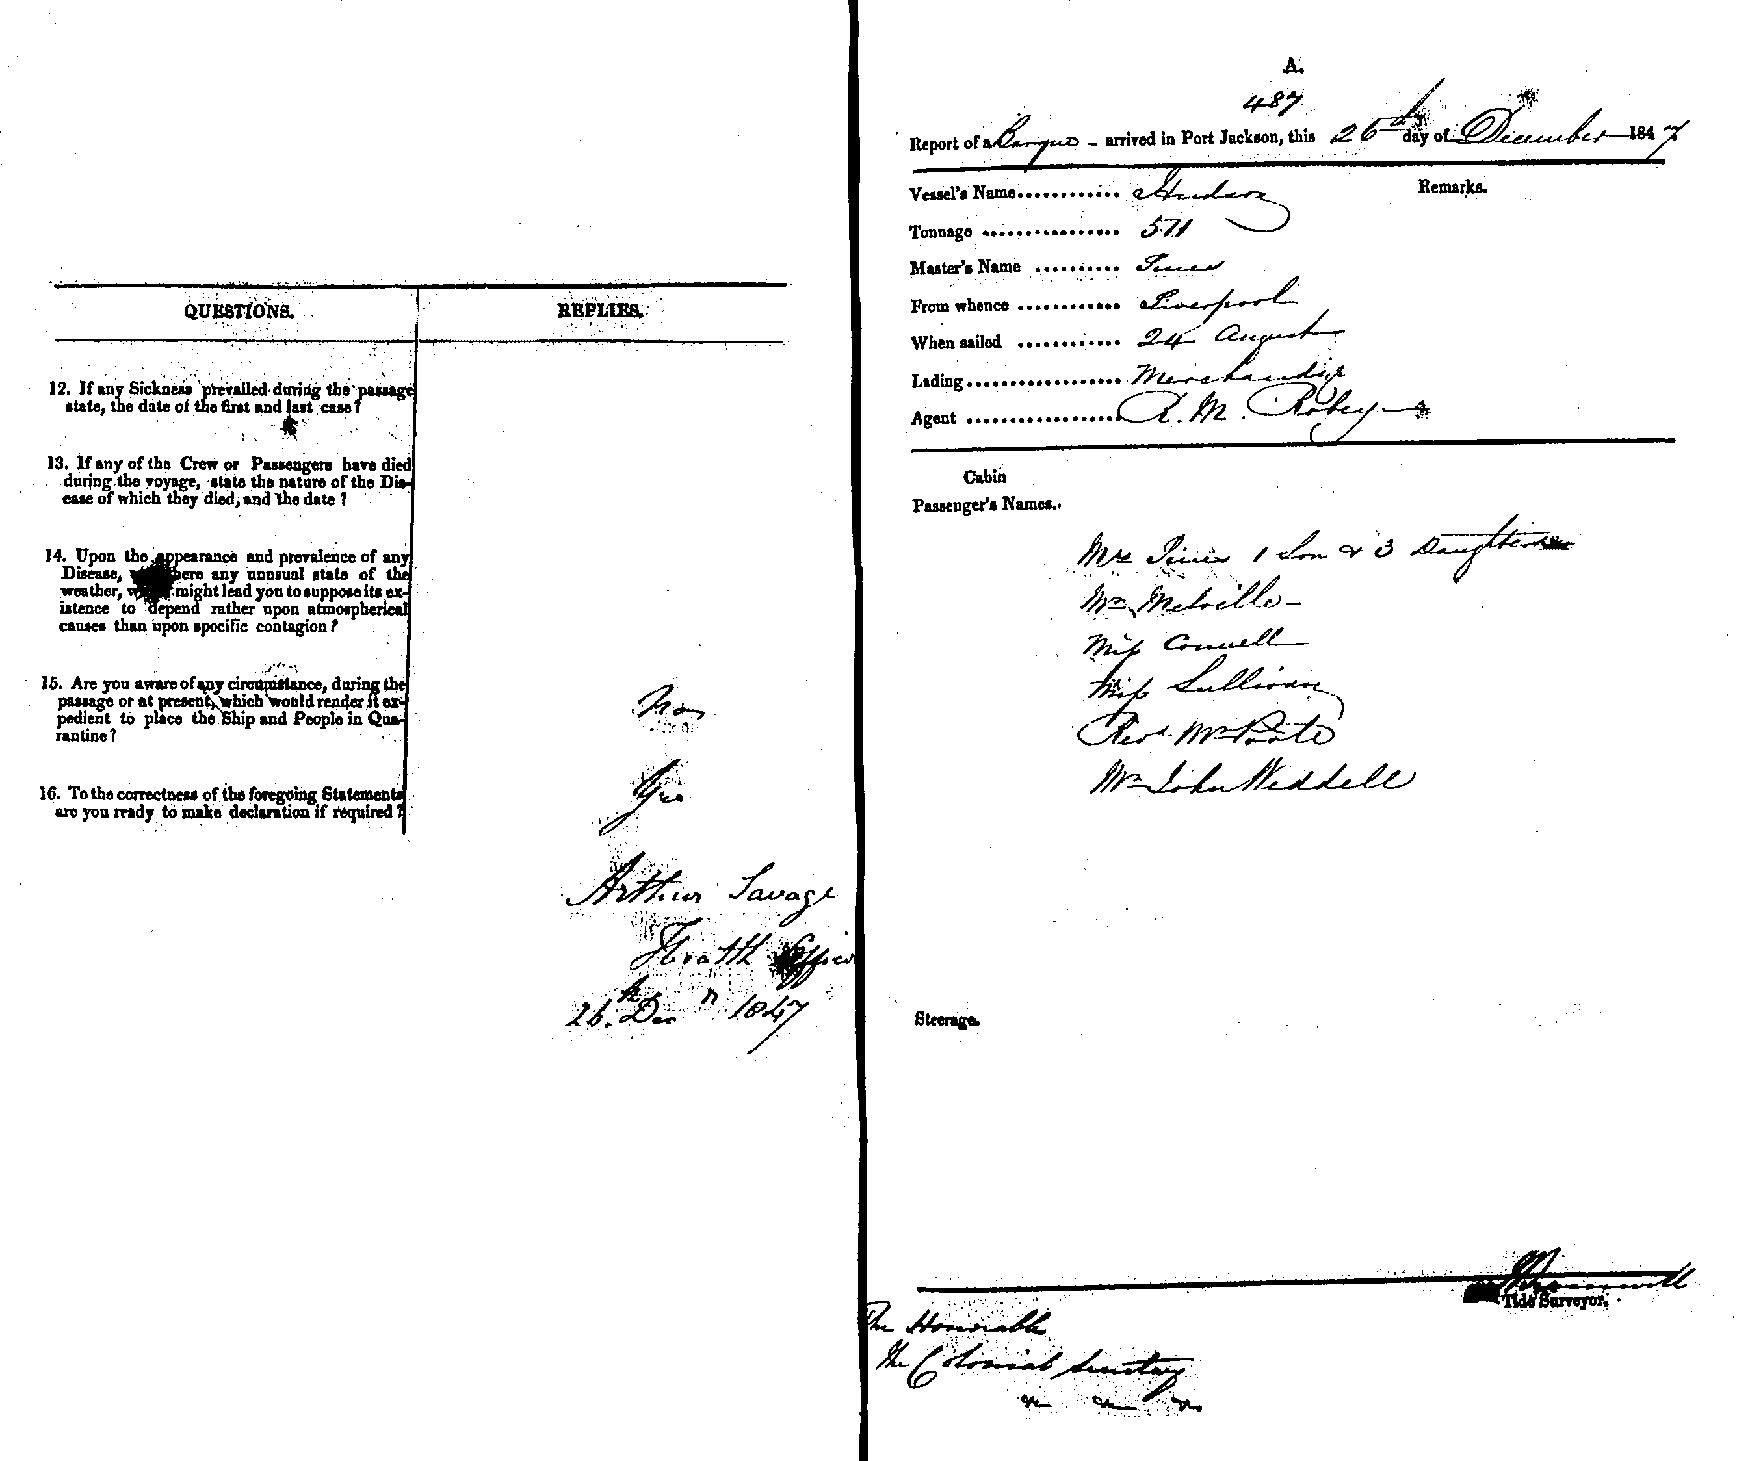 QUESTIONS. REPLIES.
12. If any Sickness prevailed during the passage
state, the date of the first and last case?
13. If any of the Crew or Passengers have died
during the voyage, state the nature of the Dis-
ease of which they died, and the date?
14. Upon the appearance and prevalence of any
Disease, were any unusual state of the
weather, might lead you to suppose its ex-
istence to depend rather upon atmospherical
causes than upon specific contagion?
15. Are you aware of any circumstance, during the
passage or at present, which would render it ex-
pedient to place the Ship and People in Qua-
rantine?
No
16. To the correctness of the foregoing Statements
are you ready to make declaration if required?
Yes
Arthur Savage
Health Officer
26th Decr 1847
A.
487
Report of a Barque - arrived in Port Jackson, this 26th day of December 1847
Vessel's Name............ Hudson Remarks.
Tonnage ................ 511
Master's Name ..........
From whence ............ Liverpool
When sailed ............ 24 August
Lading.................. Merchandize
Agent .................. R. M. Robey
Cabin
Passenger's Names..
Mrs 1 Son & 3 Daughters
Mr Melville
Miss Connell
Miss Sullivan
Revd Mr
Mr John Weddell
Steerage.
Tide Surveyor.
The Honorable
The Colonial Secretary